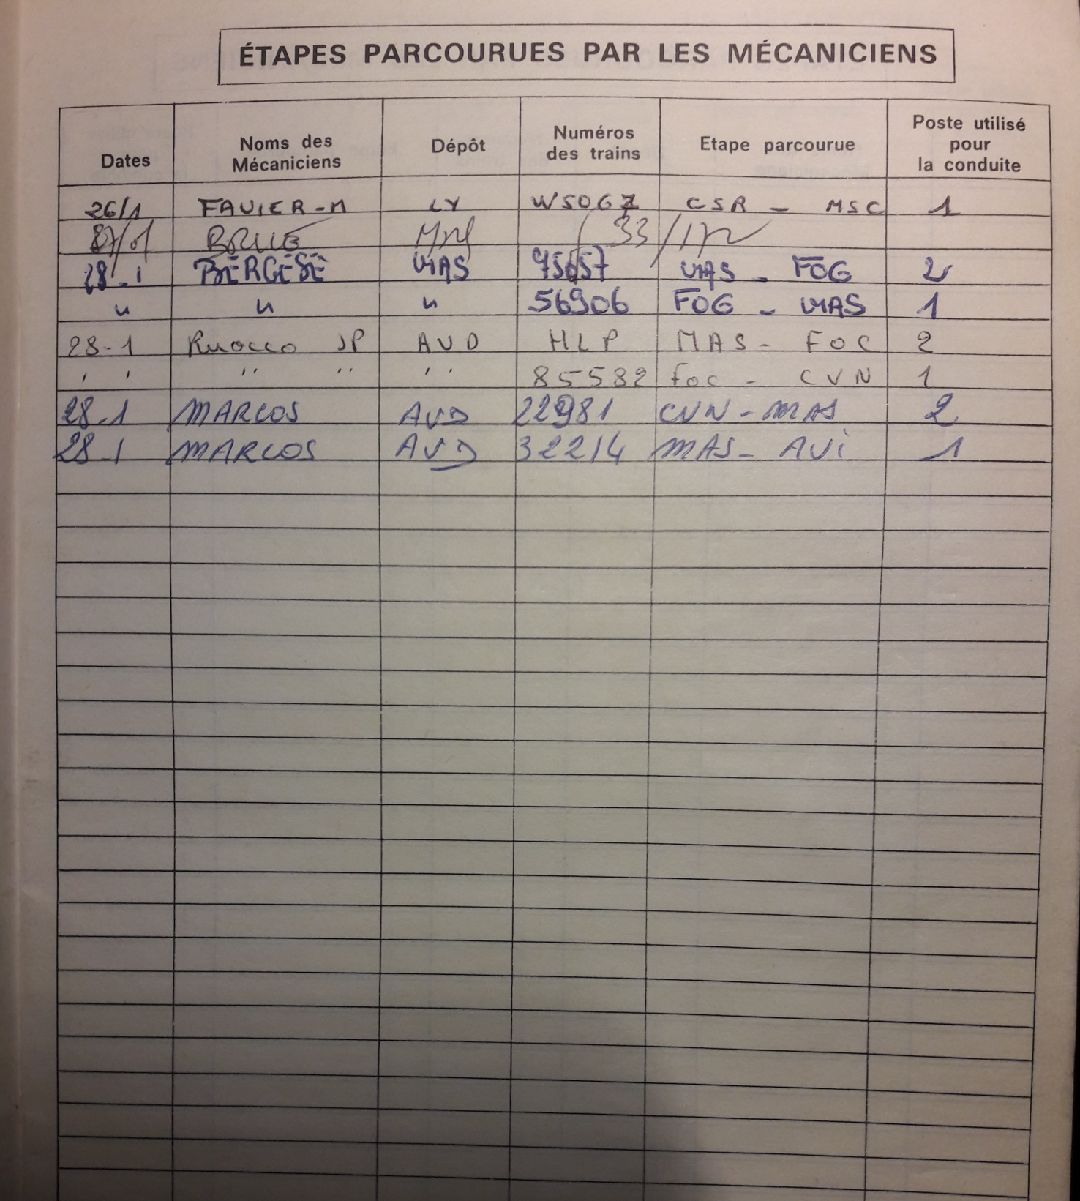 ÉTAPES PARCOURUES PAR LES MÉCANICIENS
Dates Noms des Mécaniciens Dépôt Numéros des trains Etape parcourue Poste utilisé pour la conduite
26/1 FAVIER-M LY W5067 CSR - MSC 1
BRUE 33/172
28-1 BERGESE MAS 45657 MAS - FOG 2
" " " 56906 FOG - MAS 1
28-1 Ruocco JP AVD HLP MAS - FOC 2
" " " " " 85582 FOC - CVN 1
28-1 MARCOS AVD 22981 CVN - MAS 2
28-1 MARCOS AVD 32214 MAS - AVI 1